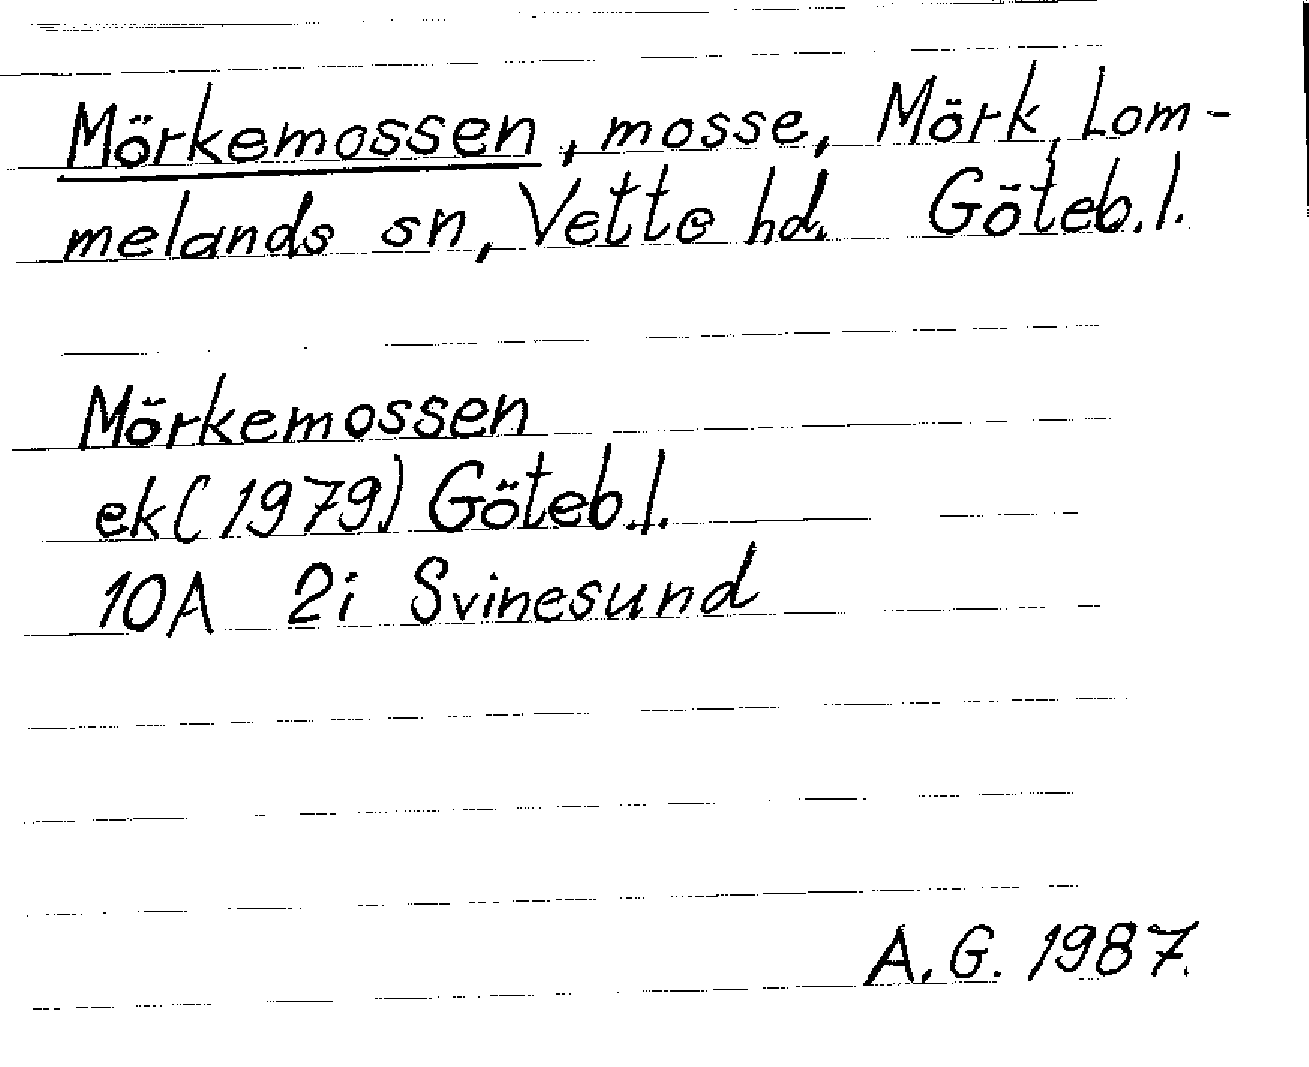 Mörkemossen, mosse, Mörk, Lom-
melands sn, Vette hd. Göteb.l.
Mörkemossen
ek(1979) Göteb.l.
10A 2i Svinesund
A.G. 1987.